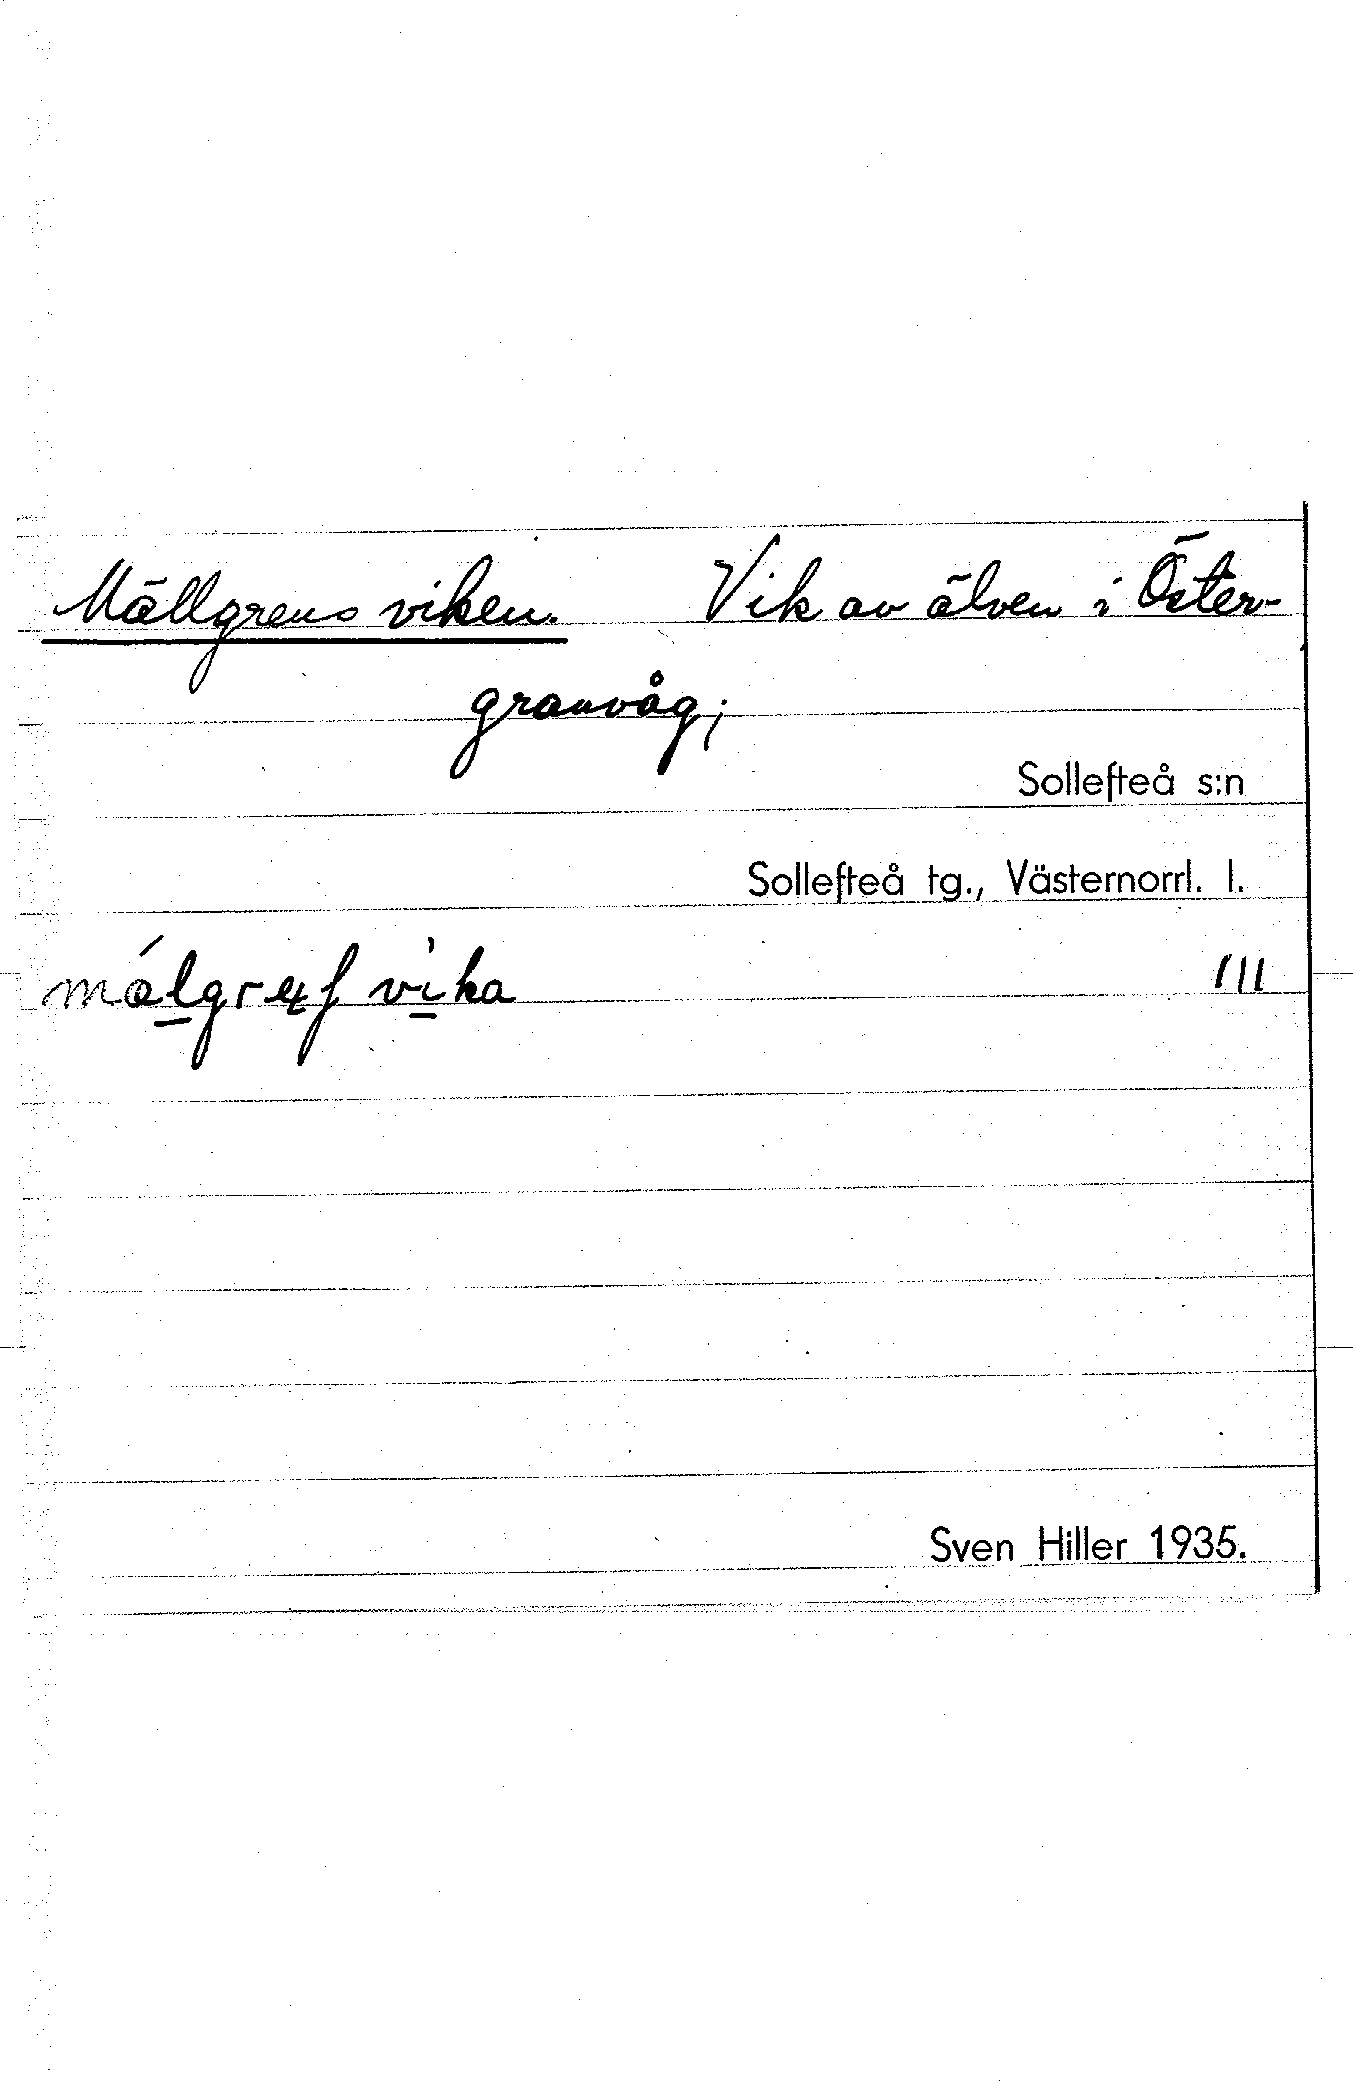 Mällgrens viken. Vik av älven i Öster-
granvåg;
Sollefteå s:n
Sollefteå tg., Västernorrl. l.
vika III
Sven Hiller 1935.